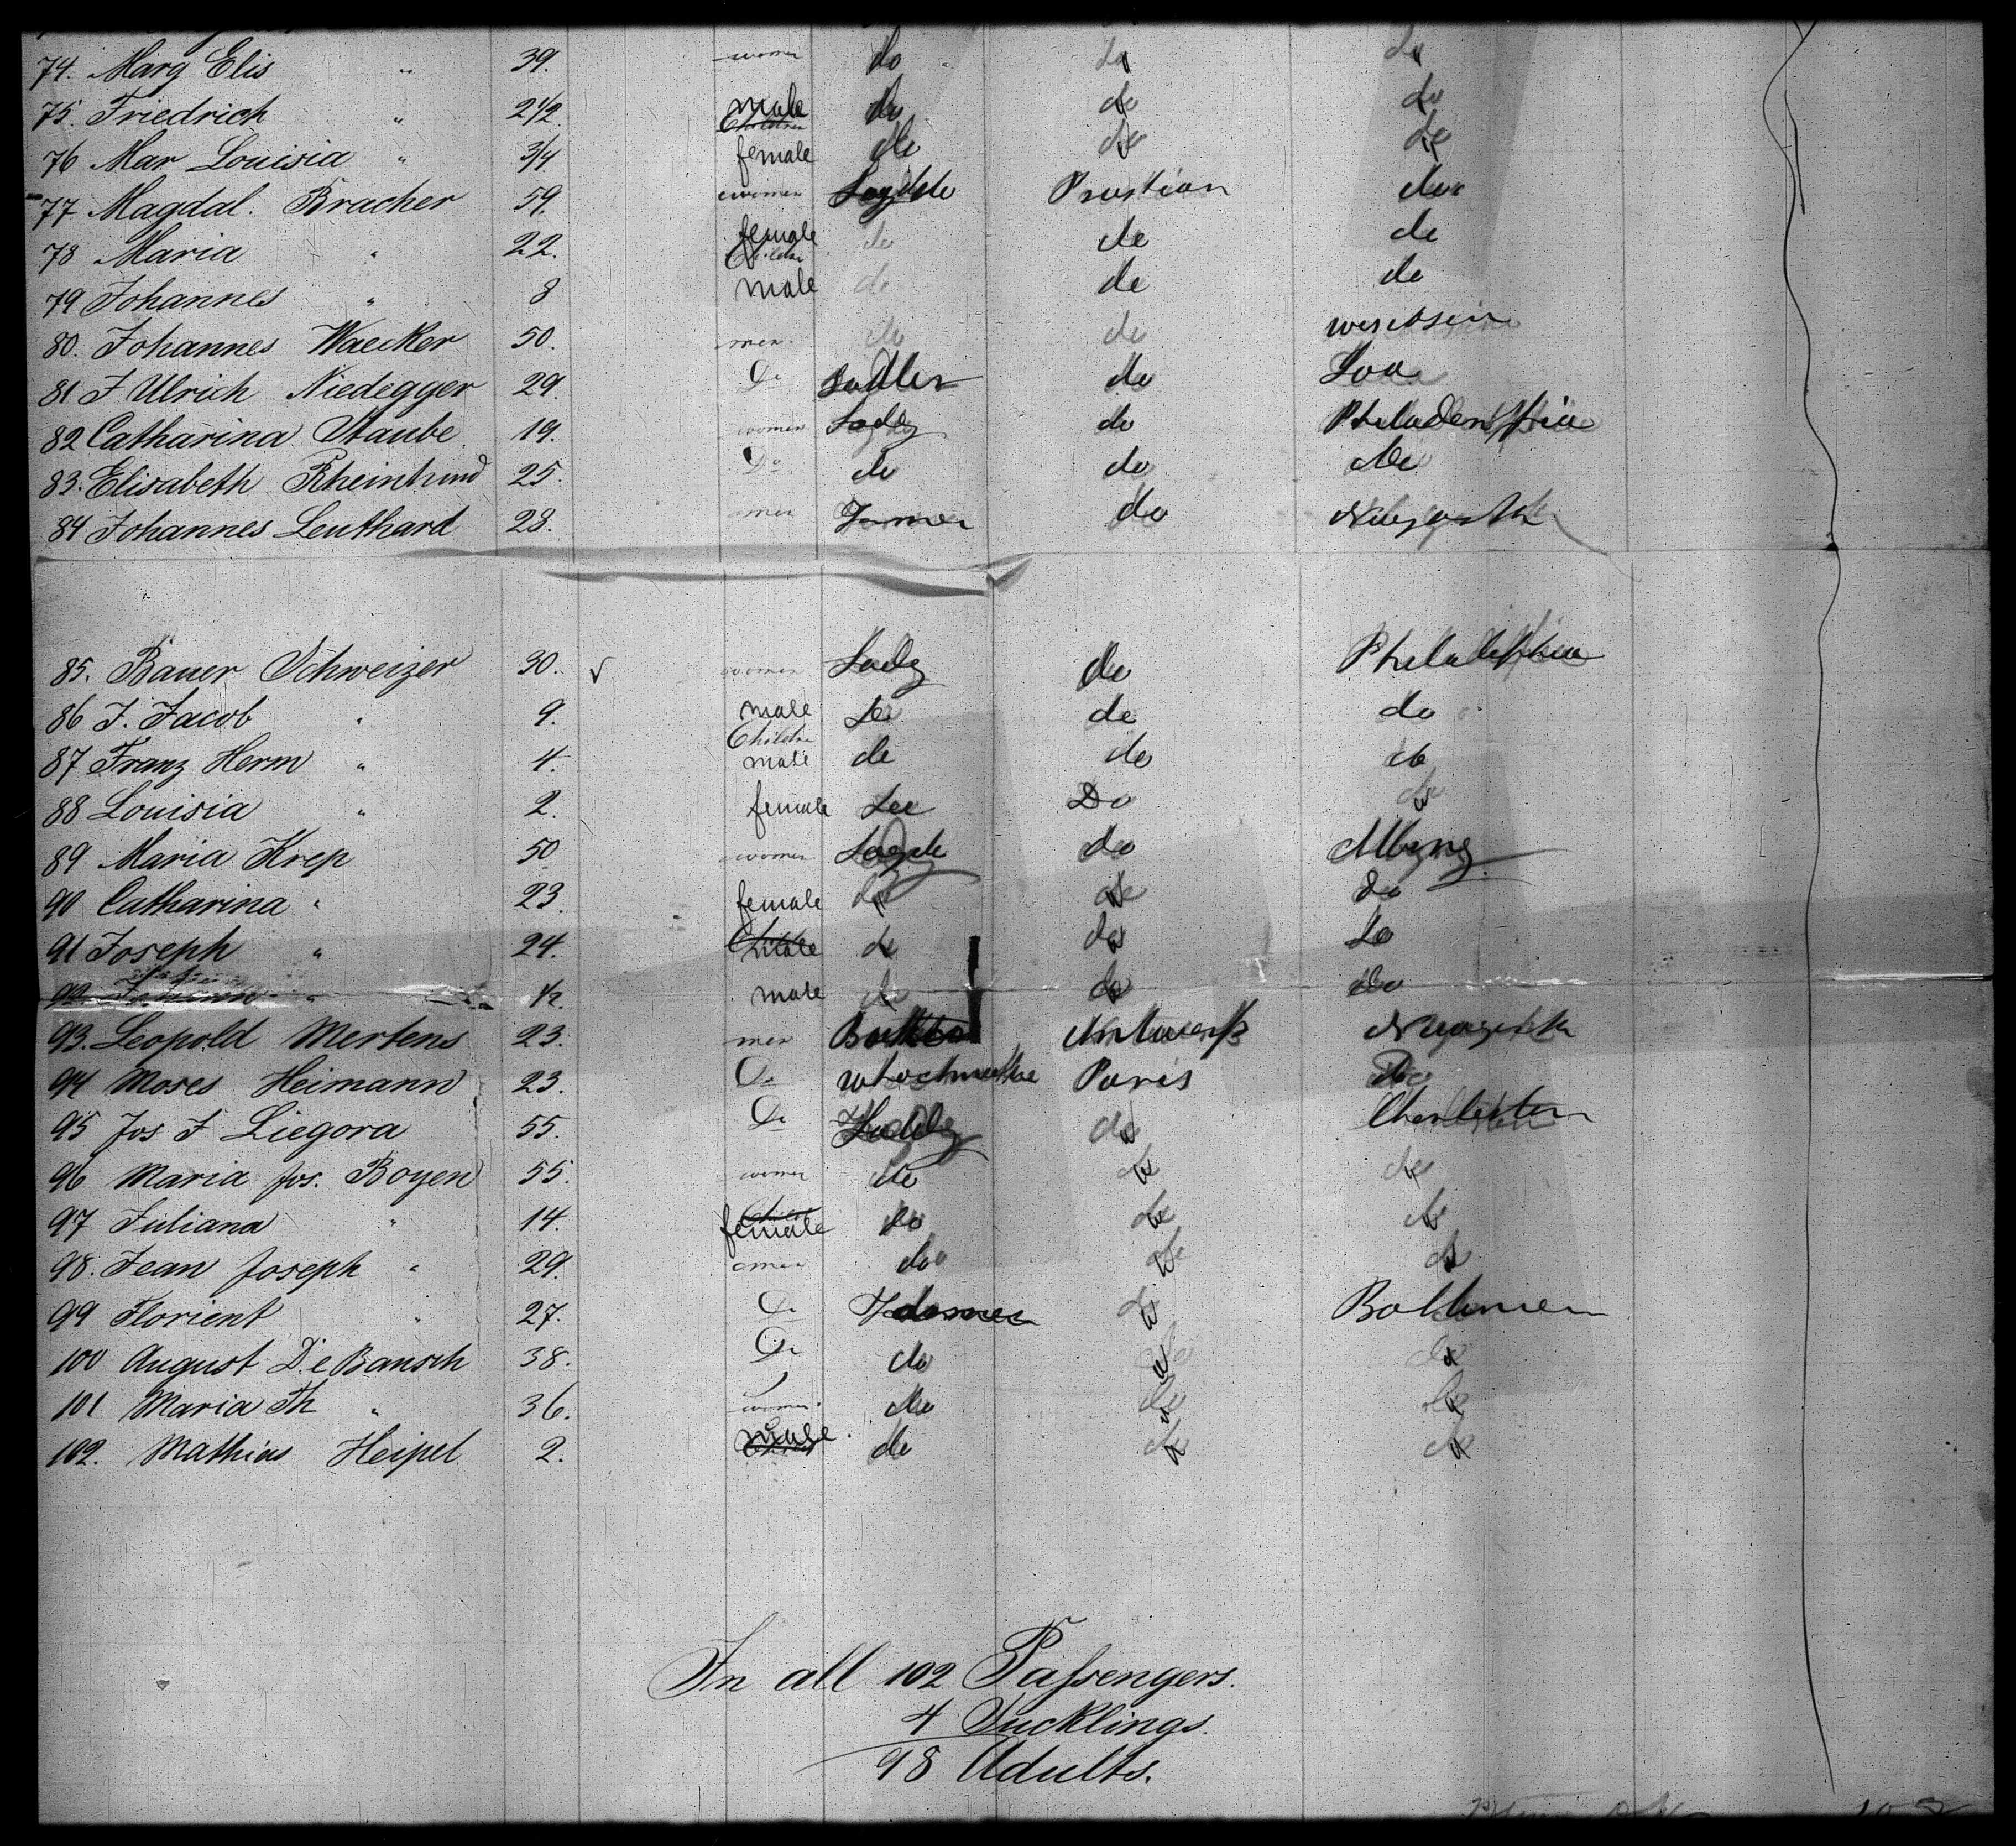 74. Marg Elis " 39. women do do do
75. Friedrich " 2 1/2 male do do do
76 Mar Louisia " 3/4 female do do do
77 Magdal. Bracher 59. women Prustian do
78 Maria " 22. female do de de
79 Johannes " 8 male de de de
80. Johannes Waecker 50. men. do de
81 J Ulrich Niedegger 29. Do do
82 Catharina Staube 19. women Lady do
83. Elisabeth Rheinhund 25. Do do do de
84 Johannes Leuthard 28. men do
85. Bauer Schweizer 30. women Lady do Philadelphia
86 J. Jacob " 9. male de de do
87 Franz Herm " 4. Childrn male de do do
88 Louisia " 2. female Do do
89 Maria Krep 50 women do Albeny
90 Catharina " 23. female do de do
91 Joseph " 24. de do do
92 " 1/2. male do do Do
93. Leopold Mertens 23. men Antwerp
94 Moses Heimann 23. Do Paris do
95 Jos J Liegora 55. Do do
96 Maria Jos. Boyen 55. women de de do
97 Juliana " 14. female do de de
98. Jean Joseph " 29. men do de do
99 Florient " 27. Do do
100 August De Bansch 38. Do do do do
101 Maria Th " 36. women. do do do
102. Mathias Heipel 2. male. de do do
In all 102 Passengers.
4 Sucklings.
98 Adults.